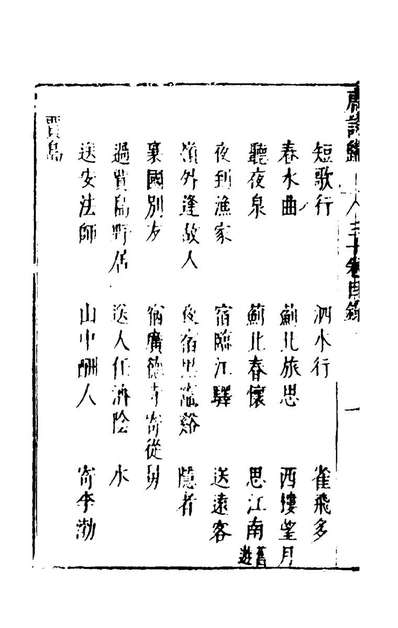 唐詩 三十卷目錄 一
短歌行 泗水行 雀飛多
春水曲 薊北旅思 西樓望月
聽夜泉 薊北春懷 思江南舊遊
夜到漁家 宿臨江驛 送遠客
嶺外逢故人 夜宿黑竈谿 隱者
襄國別友 宿廣德寺寄從舅
過賈島野居 送人任濟陰 水
送安法師 山中酬人 寄李渤
賈島